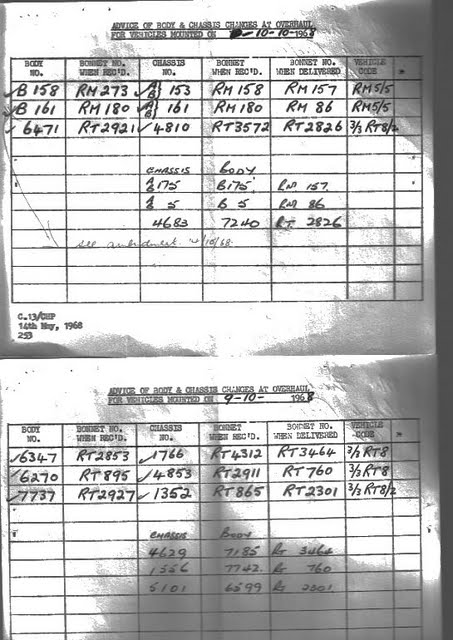 ADVICE OF BODY & CHASSIS CHANGES AT OVERHAUL
FOR VEHICLES MOUNTED ON 10-10-1968
BODY NO. BONNET NO. WHEN REC'D. CHASSIS NO. BONNET WHEN REC'D. BONNET NO. WHEN DELIVERED VEHICLE CODE
✓B 158 RM 273 ✓A/B} 153 RM 158 RM 157 RM5/5
✓B 161 RM 180 ✓A/B} 161 RM 180 RM 86 RM5/5
✓6471 RT2921 ✓4810 RT3572 RT2826 3/3 RT8/2
CHASSIS BODY
A/B 175 B175 RM 157
A/B 5 B 5 RM 86
4683 7240 RT 2826
see amendment /10/68
C.13/CHP
14th May, 1968
253
ADVICE OF BODY & CHASSIS CHANGES AT OVERHAUL
FOR VEHICLES MOUNTED ON 9-10- 1968
BODY NO. BONNET NO. WHEN REC'D. CHASSIS NO. BONNET WHEN REC'D. BONNET NO. WHEN DELIVERED VEHICLE CODE
✓6347 RT2853 ✓1766 RT4312 RT3464 3/3 RT8
✓6270 RT895 ✓4853 RT2911 RT760 3/3 RT8
✓7737 RT2927 ✓1352 RT865 RT2301 3/3 RT8/2
CHASSIS BODY
4629 7185 Rt 3464
1556 7742 Rt 760
5101 6599 Rt 2301